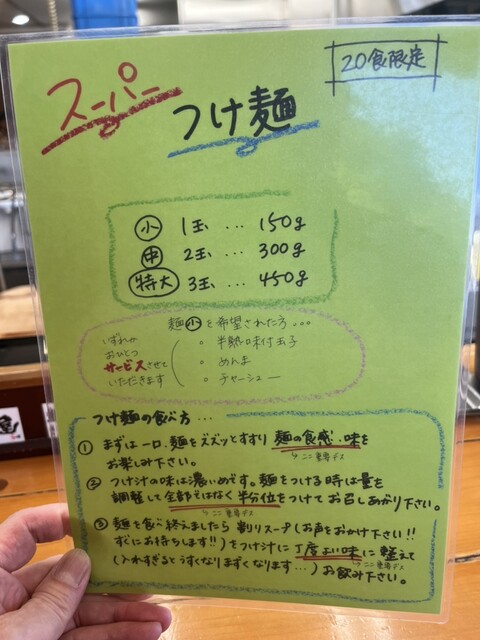 20食限定
スーパー
つけ麺
小 1玉 … 150g
中 2玉 … 300g
特大 3玉 … 450g
麺小を希望された方…
いずれか
おひとつ
サービスさせて
いただきます
・半熟味付玉子
・めんま
・チャーシュー
つけ麺の食べ方…
① まずは一口、麺をズズッとすすり 麺の食感・味を
ここ重要デス
お楽しみ下さい。
② つけ汁の味は濃いめです。麺をつける時は量を
調整して全部ではなく半分位をつけてお召しあがり下さい。
ここ重要デス
③ 麺を食べ終えましたら 割りスープ(お声をおかけ下さい!!
すぐにお持ちします!!)をつけ汁に丁度よい味に整えて
ここ重要デス
(入れすぎるとうすくなりまずくなります…)お飲み下さい。